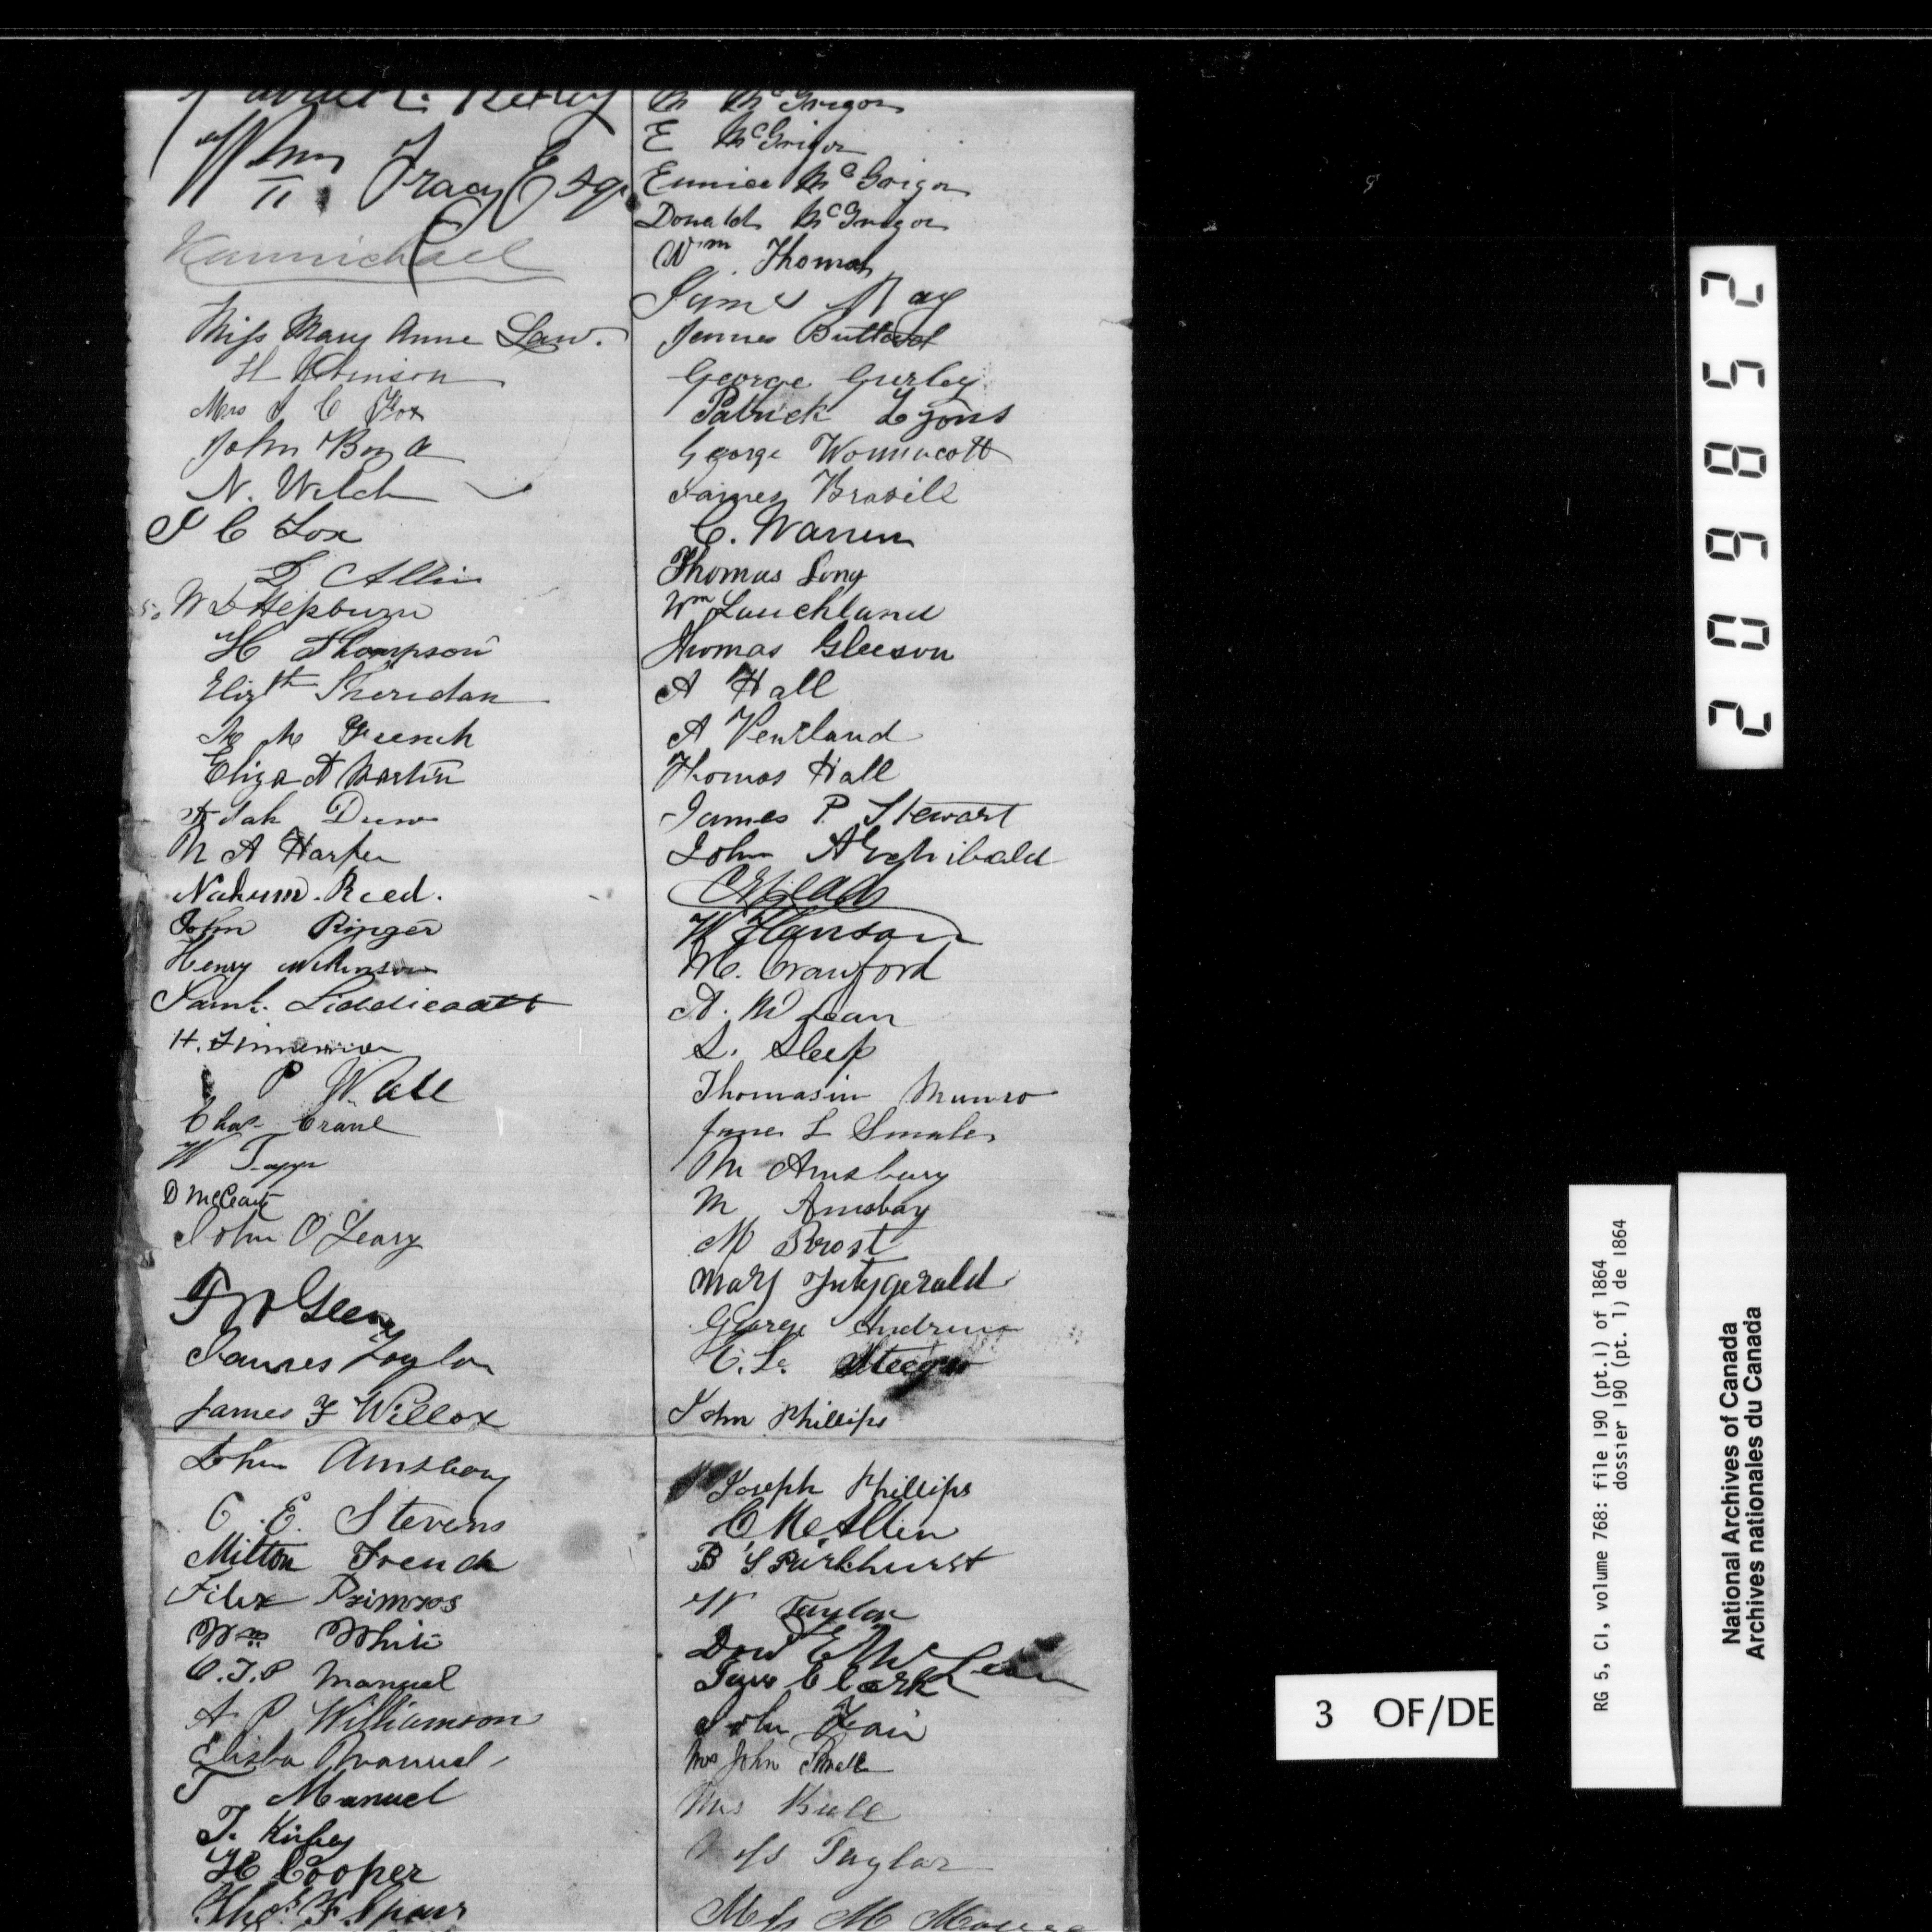 Wm Tracy Esq.
Miss Mary Anne Law.
H Robinson
Mrs J C Fox
John Boyd
N. Welch
J C Fox
D Allin
W D Hepburn
H Thompson
Elizth Sheridan
M M French
Eliza A Martin
Adah Drew
M A Harper
Nahum. Reed.
John Ringer
Henry Wilkinson
Saml. Liddicoatt
H.
P Wall
Chas Crane
W Tapp
D McCarty
John O'Leary
James Taylor
James F Willox
John Amsbury
C. E. Stevens
Milton French
Filex Primros
Wm White
O.T.P Manuel
A P Williamson
Elisha Manuel
T Manuel
T. Kirby
H Cooper
Thos. F. Spear
M McGrigor
E McGrigor
Eunice McGrigor
Donald McGrigor
Wm. Thomas
James Ray
James Butterd
George Gurley
Patrick Lyons
George Wonnacott
James Brasill
C. Warren
Thomas Long
Wm Lauchland
Thomas Gleeson
A Hall
A Pentland
Thomas Hall
James P. Stewart
John Archibald
W Hanson
M. Crawford
A. McLean
S. Sleep
Thomasin Munro
James L Smales
M Amsbury
M Amsbay
M Brost
Mary Fitzgerald
George Andrews
C. L.
John Phillips
Joseph Phillips
C McAllin
B S Parkhurst
W Taylor
Clark
John Fair
Mrs John Small
Mrs Bull
Miss Taylor
Miss M
2 0 9 8 5 2
3 OF/DE
RG 5, C1, volume 768: file 190 (pt.1) of 1864
dossier 190 (pt. 1) de 1864
National Archives of Canada
Archives nationales du Canada